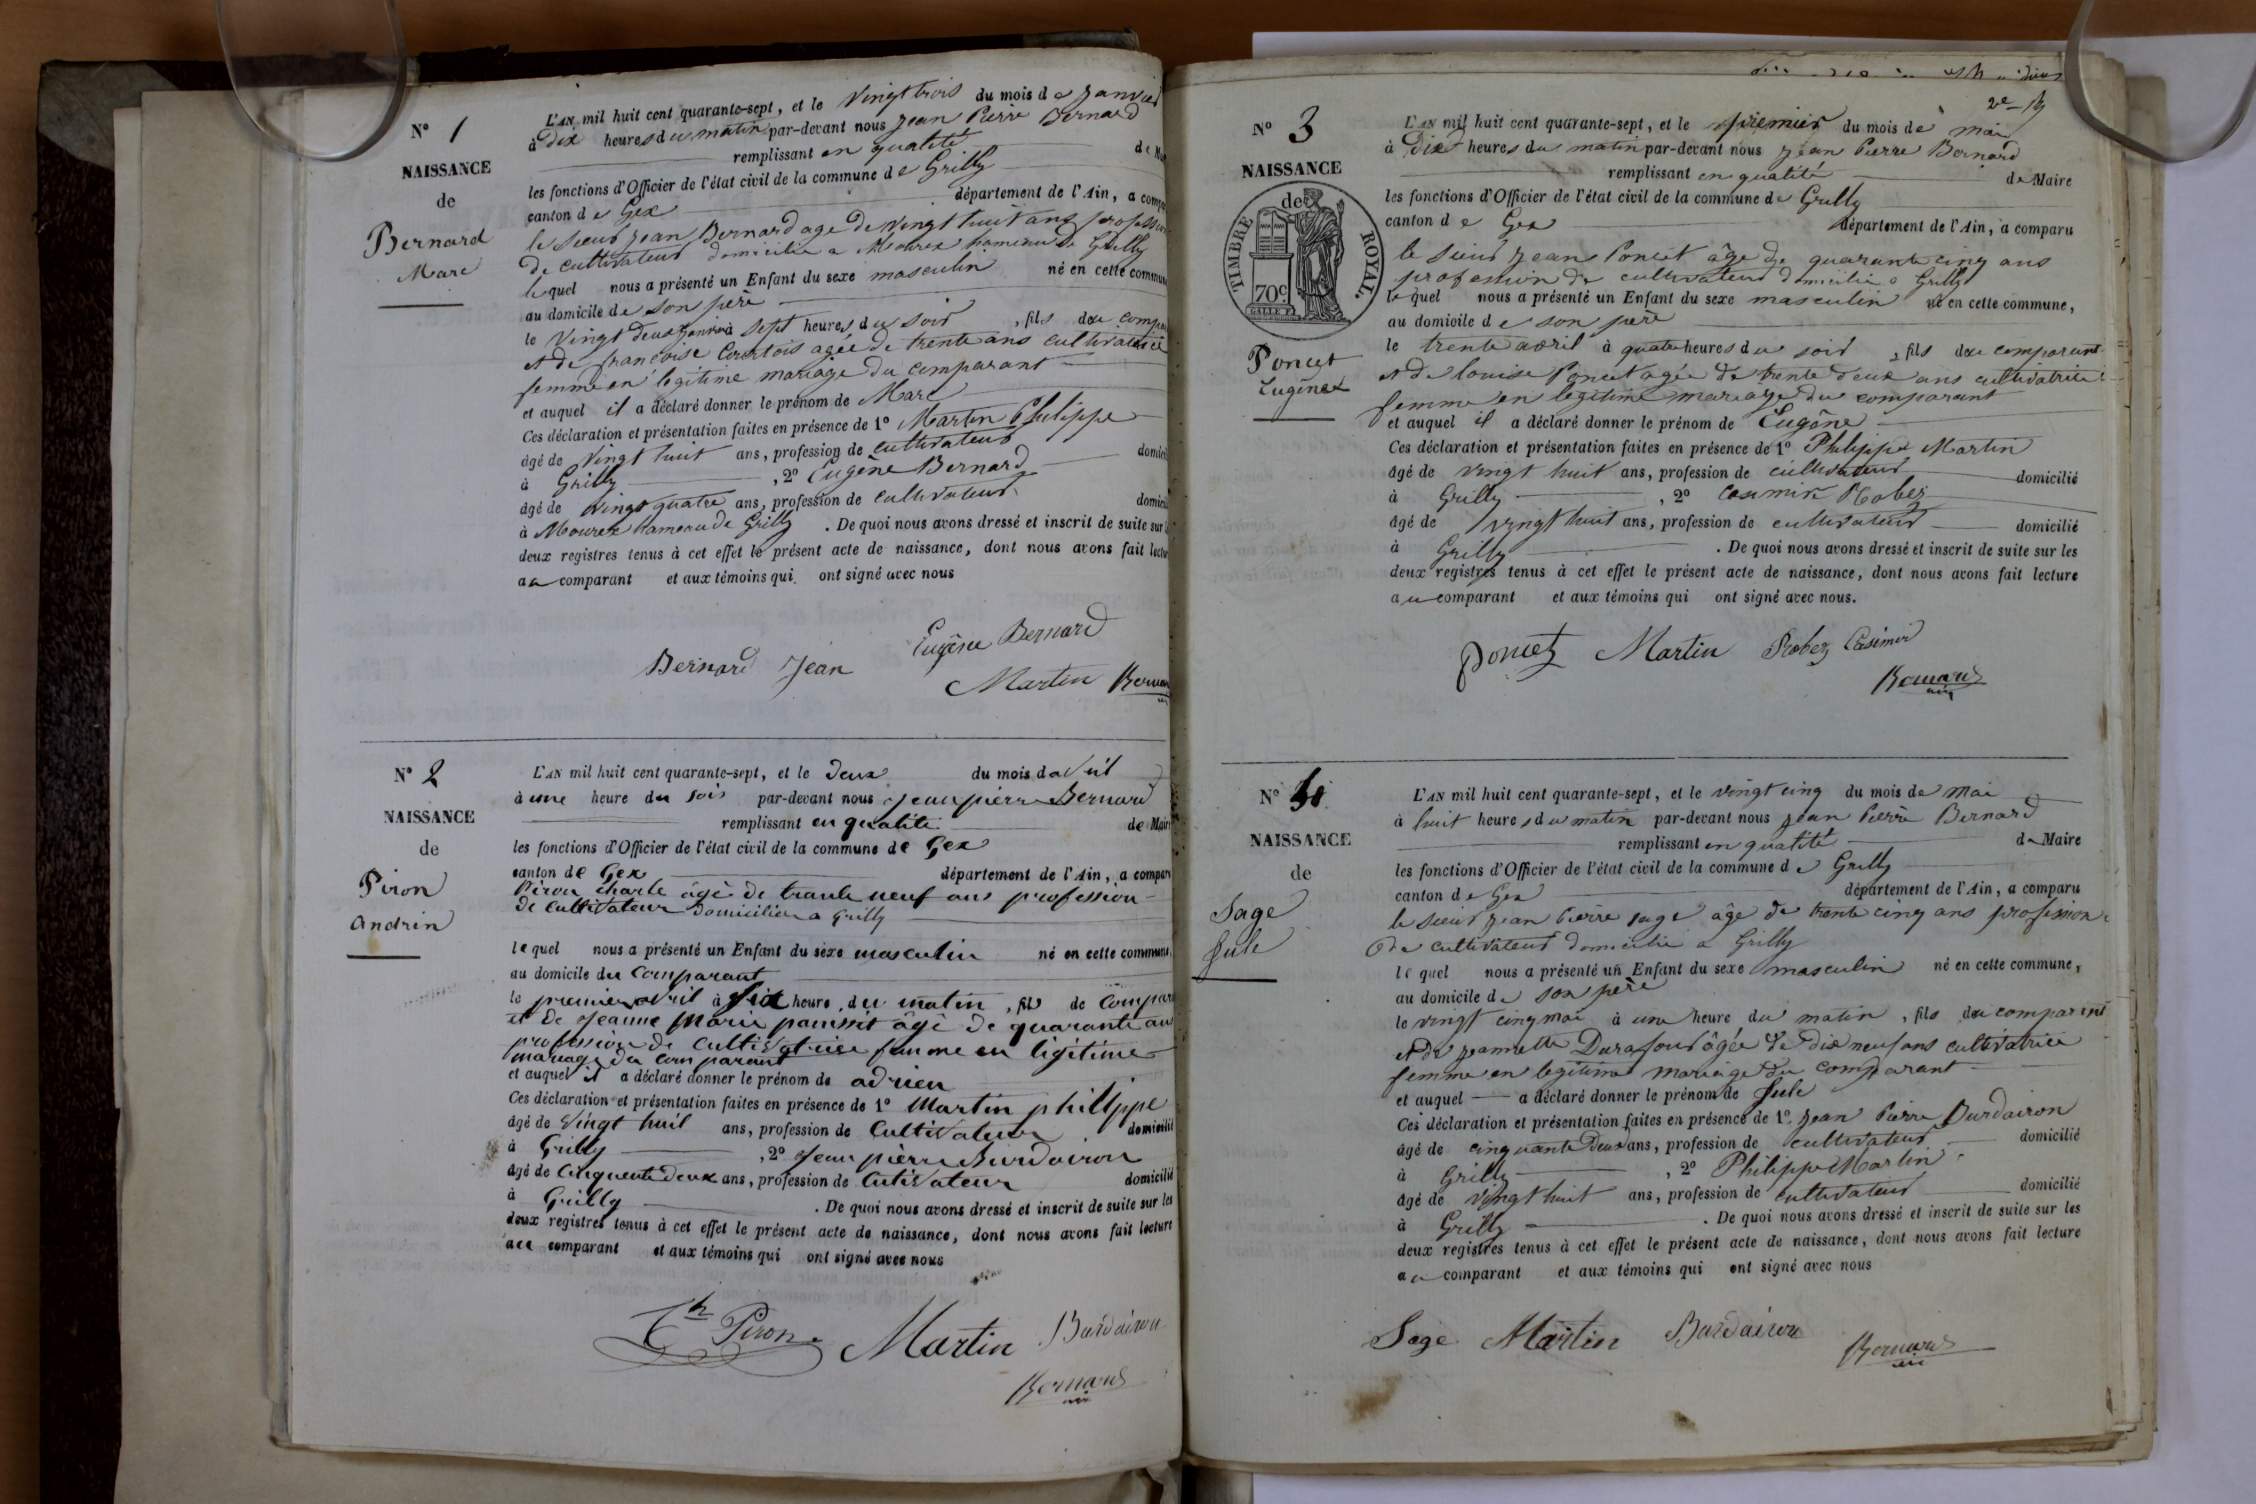 N° 1
NAISSANCE
de
Bernard
Marc
L'AN mil huit cent quarante-sept, et le vingt trois du mois de janvier
à Dix heures du matin par-devant nous Jean Pierre Bernard
remplissant en qualité de
les fonctions d'Officier de l'état civil de la commune de Grilly
canton de Gex département de l'Ain, a
le sieur Jean Bernard age de vingt huit ans
de cultivateur domicilié a Mourex hameau de Grilly
lequel nous a présenté un Enfant du sexe masculin né en cette
au domicile de son père
le vingt deux janvier à sept heures du soir, fils du
et de françoise Courtois agée de trente ans cultivatrice
femme en légitime mariage du comparant
et auquel il a déclaré donner le prénom de Marc
Ces déclaration et présentation faites en présence de 1° Martin Philippe
âgé de vingt huit ans, profession de cultivateur
à Grilly, 2° Eugène Bernard
âgé de vingt quatre ans, profession de cultivateur
à Mourex hameau de Grilly. De quoi nous avons dressé et inscrit de suite sur
deux registres tenus à cet effet le présent acte de naissance, dont nous avons fait
au comparant et aux témoins qui ont signé avec nous
Eugène Bernard
Bernard Jean
Martin
N° 2
NAISSANCE
de
Piron
Andrin
L'AN mil huit cent quarante-sept, et le deux du mois d'avril
à une heure du soir par-devant nous Jean pierre Bernard
remplissant en qualité de
les fonctions d'Officier de l'état civil de la commune de Gex
canton de Gex département de l'Ain, a
Piron charle âgé de trante neuf ans profession
de Cultivateur domicilier a Grilly
lequel nous a présenté un Enfant du sexe masculin né en cette commune,
au domicile du Comparant
le premier avril à six heure du matin, fils de
et de Jeanne Marie âgé de quarante
profession de Cultivatrice femme en légitime
mariage du comparant
et auquel il a déclaré donner le prénom de adrien
Ces déclaration et présentation faites en présence de 1° Martin philippe
âgé de vingt huit ans, profession de Cultivateur domicilié
à Grilly, 2° Jean pierre Burdairon
âgé de Cinquente deux ans, profession de Cutivateur domicilié
à Grilly. De quoi nous avons dressé et inscrit de suite sur les
deux registres tenus à cet effet le présent acte de naissance, dont nous avons fait lecture
au comparant et aux témoins qui ont signé avec nous
Ch Piron Martin Burdairon
Bernard
2e
N° 3
NAISSANCE
de
TIMBRE ROYAL.
70c
Poncet
Eugène
L'AN mil huit cent quarante-sept, et le premier du mois de mai
à Dix heures du matin par-devant nous Jean Pierre Bernard
remplissant en qualité de Maire
les fonctions d'Officier de l'état civil de la commune de Grilly
canton de Gex département de l'Ain, a comparu
le sieur Jean Poncet âgé de quarante cinq ans
profession de cultivateur domicilié a Grilly
lequel nous a présenté un Enfant du sexe masculin né en cette commune,
au domicile de son père
le trente avril à quatre heures du soir, fils du comparant
et de louise Poncet agée de trente deux ans cultivatrice
femme en légitime mariage du comparant
et auquel il a déclaré donner le prénom de Eugène
Ces déclaration et présentation faites en présence de 1° Philippe Martin
âgé de vingt huit ans, profession de cultivateur domicilié
à Grilly, 2° Casimir Robez
âgé de vingt huit ans, profession de cultivateur domicilié
à Grilly. De quoi nous avons dressé et inscrit de suite sur les
deux registres tenus à cet effet le présent acte de naissance, dont nous avons fait lecture
au comparant et aux témoins qui ont signé avec nous.
Poncet Martin Robez Casimir
Bernard
N° 4
NAISSANCE
de
Sage
Jule
L'AN mil huit cent quarante-sept, et le vingt cinq du mois de mai
à huit heures du matin par-devant nous Jean Pierre Bernard
remplissant en qualité de Maire
les fonctions d'Officier de l'état civil de la commune de Grilly
canton de Gex département de l'Ain, a comparu
le sieur Jean Pierre sage âgé de trente cinq ans profession
de cultivateur domicilié a Grilly
lequel nous a présenté un Enfant du sexe masculin né en cette commune,
au domicile de son père
le vingt cinq mai à une heure du matin, fils du comparant
et de jeannette Durafour âgée de dix neuf ans cultivatrice
femme en légitime mariage du comparant
et auquel a déclaré donner le prénom de Jule
Ces déclaration et présentation faites en présence de 1° Jean Pierre Burdairon
âgé de cinquante deux ans, profession de cultivateur domicilié
à Grilly, 2° Philippe Martin
âgé de vingt huit ans, profession de cultivateur domicilié
à Grilly. De quoi nous avons dressé et inscrit de suite sur les
deux registres tenus à cet effet le présent acte de naissance, dont nous avons fait lecture
au comparant et aux témoins qui ont signé avec nous
Sage Martin Burdairon
Bernard